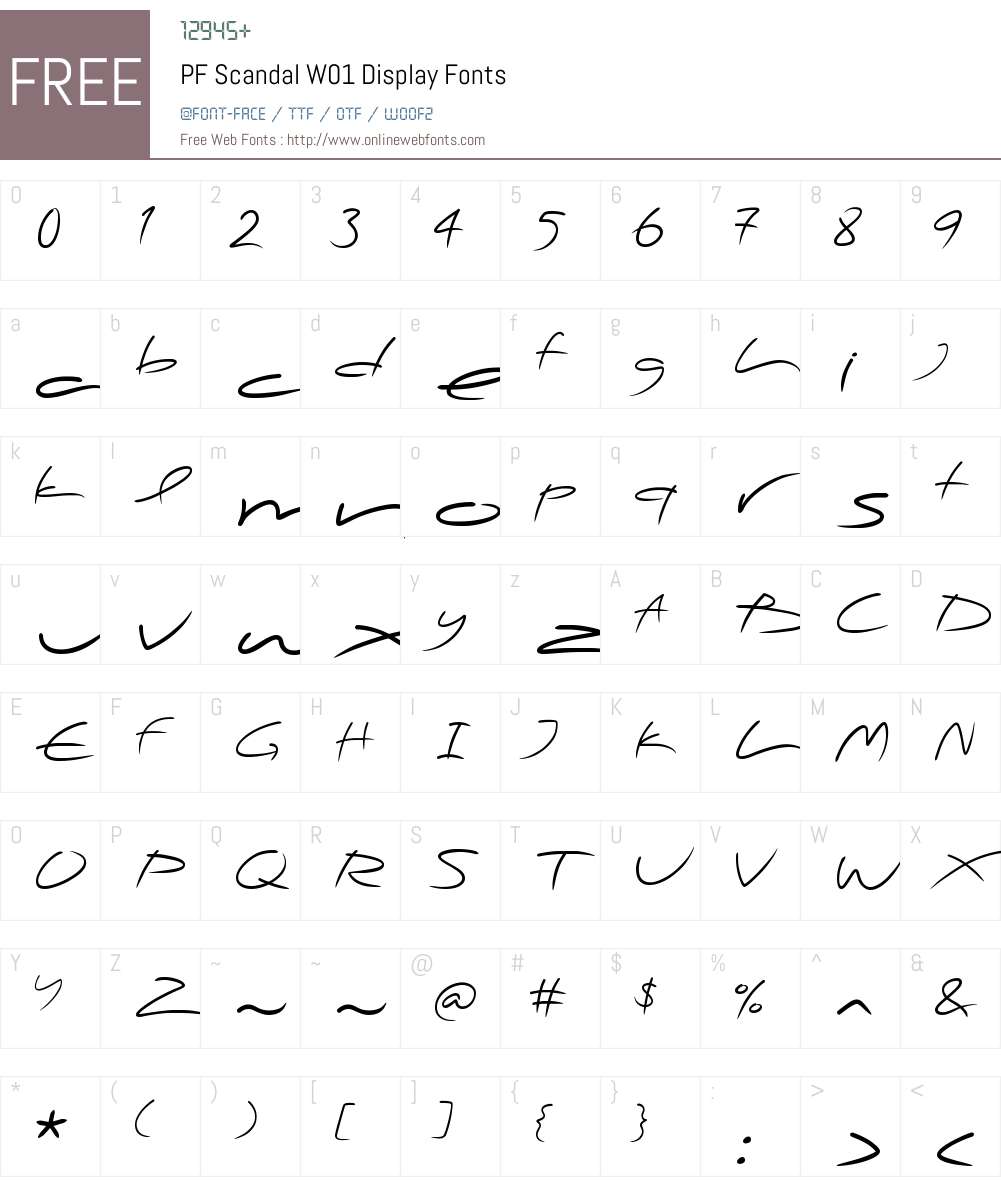 FREE
12945+
PF Scandal W01 Display Fonts
@FONT-FACE / TTF / OTF / WOOF2
Free Web Fonts : http://www.onlinewebfonts.com
0 1 2 3 4 5 6 7 8 9
0 1 2 3 4 5 6 7 8 9
a b c d e f g h i j
a b c d e f g h i j
k l m n o p q r s t
k l m n o p q r s t
u v w x y z A B C D
u v w x y z A B C D
E F G H I J K L M N
E F G H I J K L M N
O P Q R S T U V W X
O P Q R S T U V W X
Y Z ~ ~ @ # $ % ^ &
Y Z ~ ~ @ # $ % ^ &
* ( ) [ ] { } : > <
* ( ) [ ] { } : > <